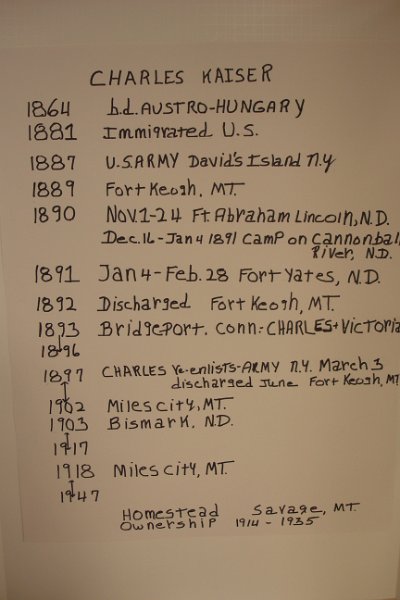 CHARLES KAISER
1864 b.d. AUSTRO-HUNGARY
1881 Immigrated U.S.
1887 U.S. ARMY David's Island N.Y
1889 Fort Keogh, MT.
1890 Nov. 1-24 Ft Abraham Lincoln, N.D.
Dec. 16 - Jan 4 1891 Camp on Cannonball
River, N.D.
1891 Jan 4 - Feb. 28 Fort Yates, N.D.
1892 Discharged Fort Keogh, MT.
1893 Bridgeport. Conn.- CHARLES + Victoria
1896
1897 CHARLES re-enlists-ARMY N.Y. March 3
discharged June Fort Keogh, MT
1902 Miles City, MT.
1903 Bismark, N.D.
1917
1918 Miles City, MT.
1947
Homestead Savage, MT.
Ownership 1914 - 1935